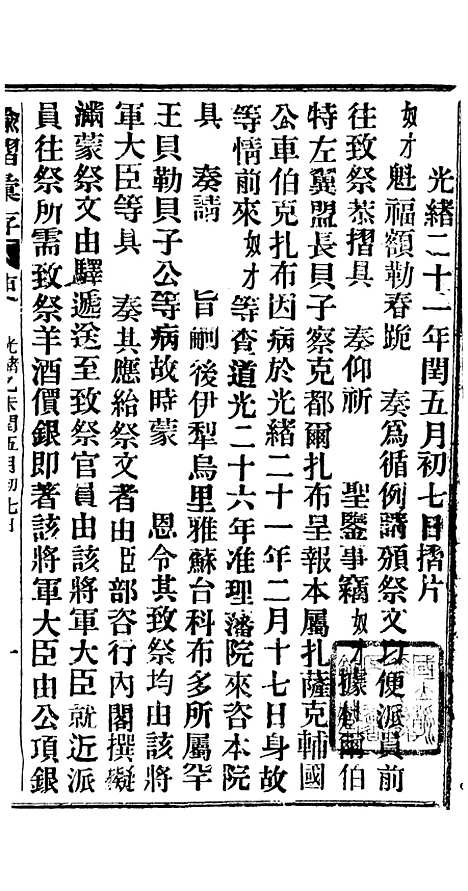 光緒二十一年閏五月初七日摺片
奴才魁福額勒春跪　奏爲循例請頒祭文以便派員前
往致祭恭摺具　奏仰祈　聖鑒事竊奴才據爾伯
特左翼盟長貝子察克都爾扎布呈報本屬扎薩克輔國
公車伯克扎布因病於光緒二十一年二月十七日身故
等情前來奴才等查道光二十六年准理藩院來咨本院
具　奏請　旨嗣後伊犁烏里雅蘇台科布多所屬罕
王貝勒貝子公等病故時蒙　恩令其致祭均由該將
軍大臣等具　奏其應給祭文者由臣部咨行內閣撰擬
滿蒙祭文由驛遞送至致祭官員由該將軍大臣就近派
員往祭所需致祭羊酒價銀即著該將軍大臣由公項銀
光緒乙未閏五月初七日　一